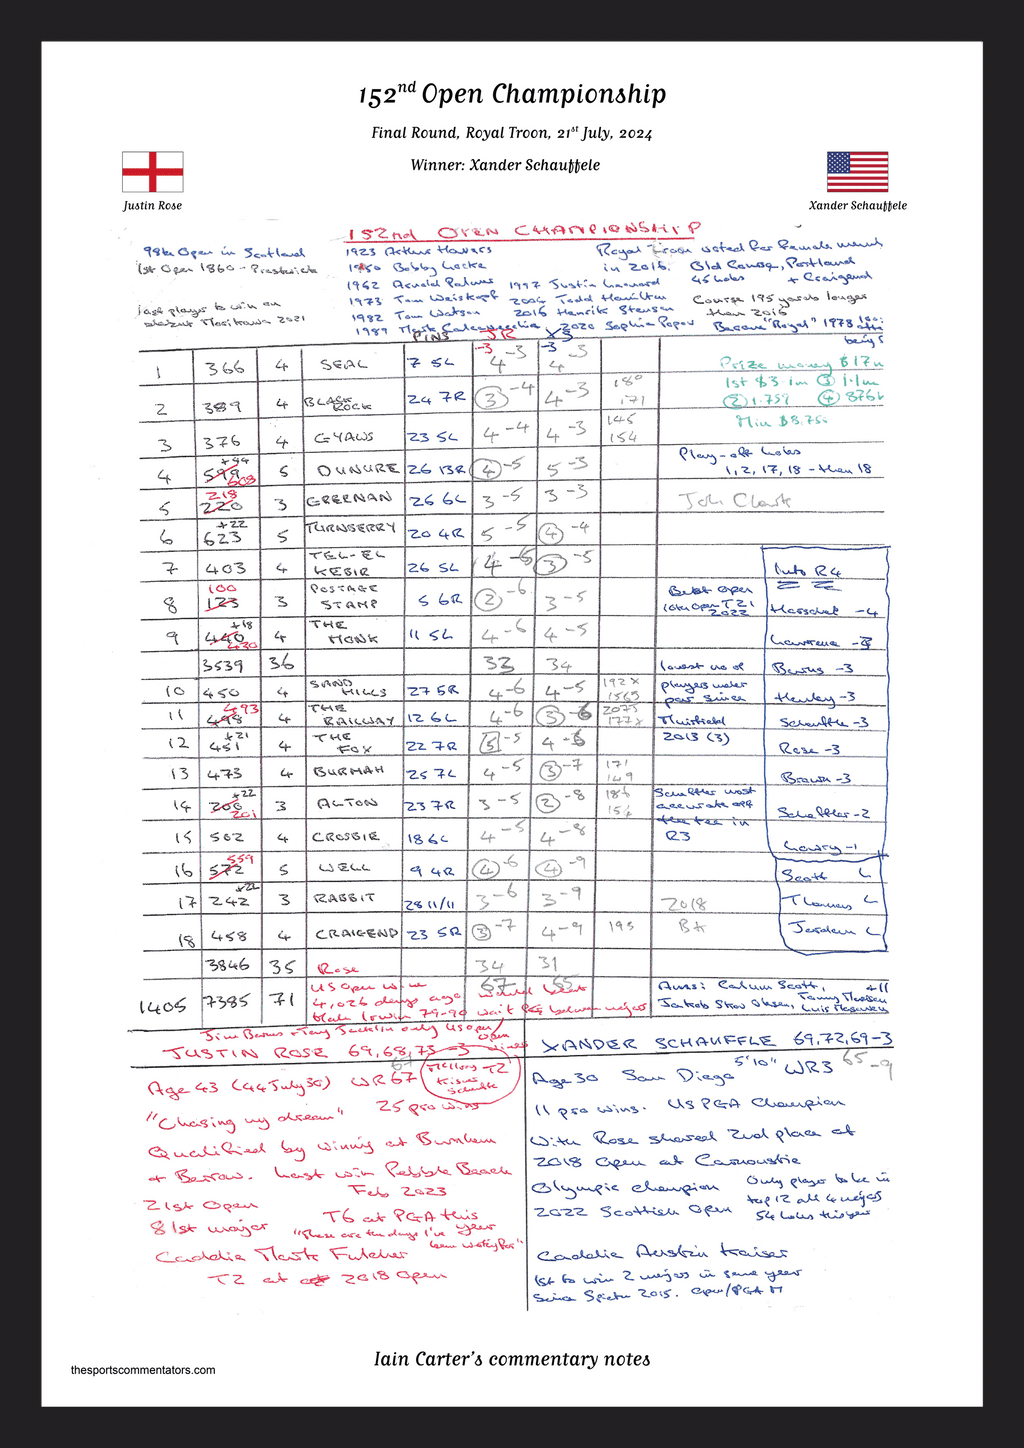 152nd Open Championship
Final Round, Royal Troon, 21st July, 2024
Winner: Xander Schauffele
Justin Rose
Xander Schauffele
152nd OPEN CHAMPIONSHIP
98th Open in Scotland
1st Open 1860 - Prestwick
last player to win on
2021
1923 Arthur Havers
1950 Bobby Locke
1962 Arnold Palmer
1973 Tom Weiskopf
1982 Tom Watson
1989 Mark Calcavecchia
1997 Justin Leonard
2004 Todd Hamilton
2016 Henrik Stenson
2020 Sophia Popov
Royal Troon voted for female memb
in 2016. Old Course, Portland
45 holes + Craigend
Course 195 yards longer
than 2016
Became "Royal" 1978
being
PINS JR XS
-3 -3
1 366 4 SEAL 7 5L 4 -3 4 -3
2 389 4 BLACK ROCK 24 7R 3 -4 4 -3 180 171
3 376 4 GYAWS 23 5L 4 -4 4 -3 145 154
4 599 608 5 DUNURE 26 13R 4 -5 5 -3
5 220 218 3 GREENAN 26 6L 3 -5 3 -3
6 +22 623 5 TURNBERRY 20 4R 5 -5 4 -4
7 403 4 TEL-EL KEBIR 26 5L 4 -5 3 -5
8 100 123 3 POSTAGE STAMP 5 6R 2 -6 3 -5
9 +18 440 430 4 THE MONK 11 5L 4 -6 4 -5
3539 36 33 34
10 450 4 SAND HILLS 27 5R 4 -6 4 -5 192x 156S
11 493 498 4 THE RAILWAY 12 6L 4 -6 3 -6 207S 177x
12 +21 451 4 THE FOX 22 7R 5 -5 4 -6
13 473 4 BURMAH 25 7L 4 -5 3 -7 171 149
14 +22 208 201 3 AILTON 23 7R 3 -5 2 -8 186 154
15 502 4 CROSBIE 18 6L 4 -5 4 -8
16 559 572 5 WELL 9 4R 4 -6 4 -9
17 +22 242 3 RABBIT 28 11/11 3 -6 3 -9
18 458 4 CRAIGEND 23 5R 3 -7 4 -9 195
3846 35 Rose 34 31
1405 7385 71 67 65
Prize money $17m
1st $3.1m 3 1.1m
2 1.759 4 876k
Min $8.75k
Play-off holes
1, 2, 17, 18 - then 18
John Clark
Best Open
10th Open T21
2022
lowest no of
players under
par since
Muirfield
2013 (3)
Scheffler most
accurate off
the tee in
R3
2018
Into R4
Horschel -4
Lawrence -3
Burns -3
Henley -3
Schauffle -3
Rose -3
Brown -3
Scheffler -2
Lowry -1
Scott L
Thomas L
Jordan L
US Open win
4,026 days ago would beat
Hale Irwin 79-90 wait for between majors
Ams: Calum Scott, +11
Jakob Skov Olesen, Tommy Morrison
Luis Masaveu
Jim Barnes + Tony Jacklin only US Open/
Open
JUSTIN ROSE 69, 68, 73 -3
67
Age 43 (44 July 30) WR67
"Chasing my dream" 25 pro wins
Qualified by winning at Burnham
+ Berrow. Last win Pebble Beach
Feb 2023
21st Open
T6 at PGA this
81st major
year
"These are the days I've
been waiting for"
Caddie Mark Fulcher
T2 at 2018 Open
XANDER SCHAUFFLE 69, 72, 69 -3
65 -9
Age 30 San Diego 5'10" WR3
11 pro wins. US PGA Champion
With Rose shared 2nd place at
2018 Open at Carnoustie
Olympic champion Only player to be in
top 12 all 4 majors
2022 Scottish Open
54 holes this year
Caddie Austin Kaiser
1st to win 2 majors in same year
since Spieth 2015. Open/PGA
Iain Carter's commentary notes
thesportscommentators.com